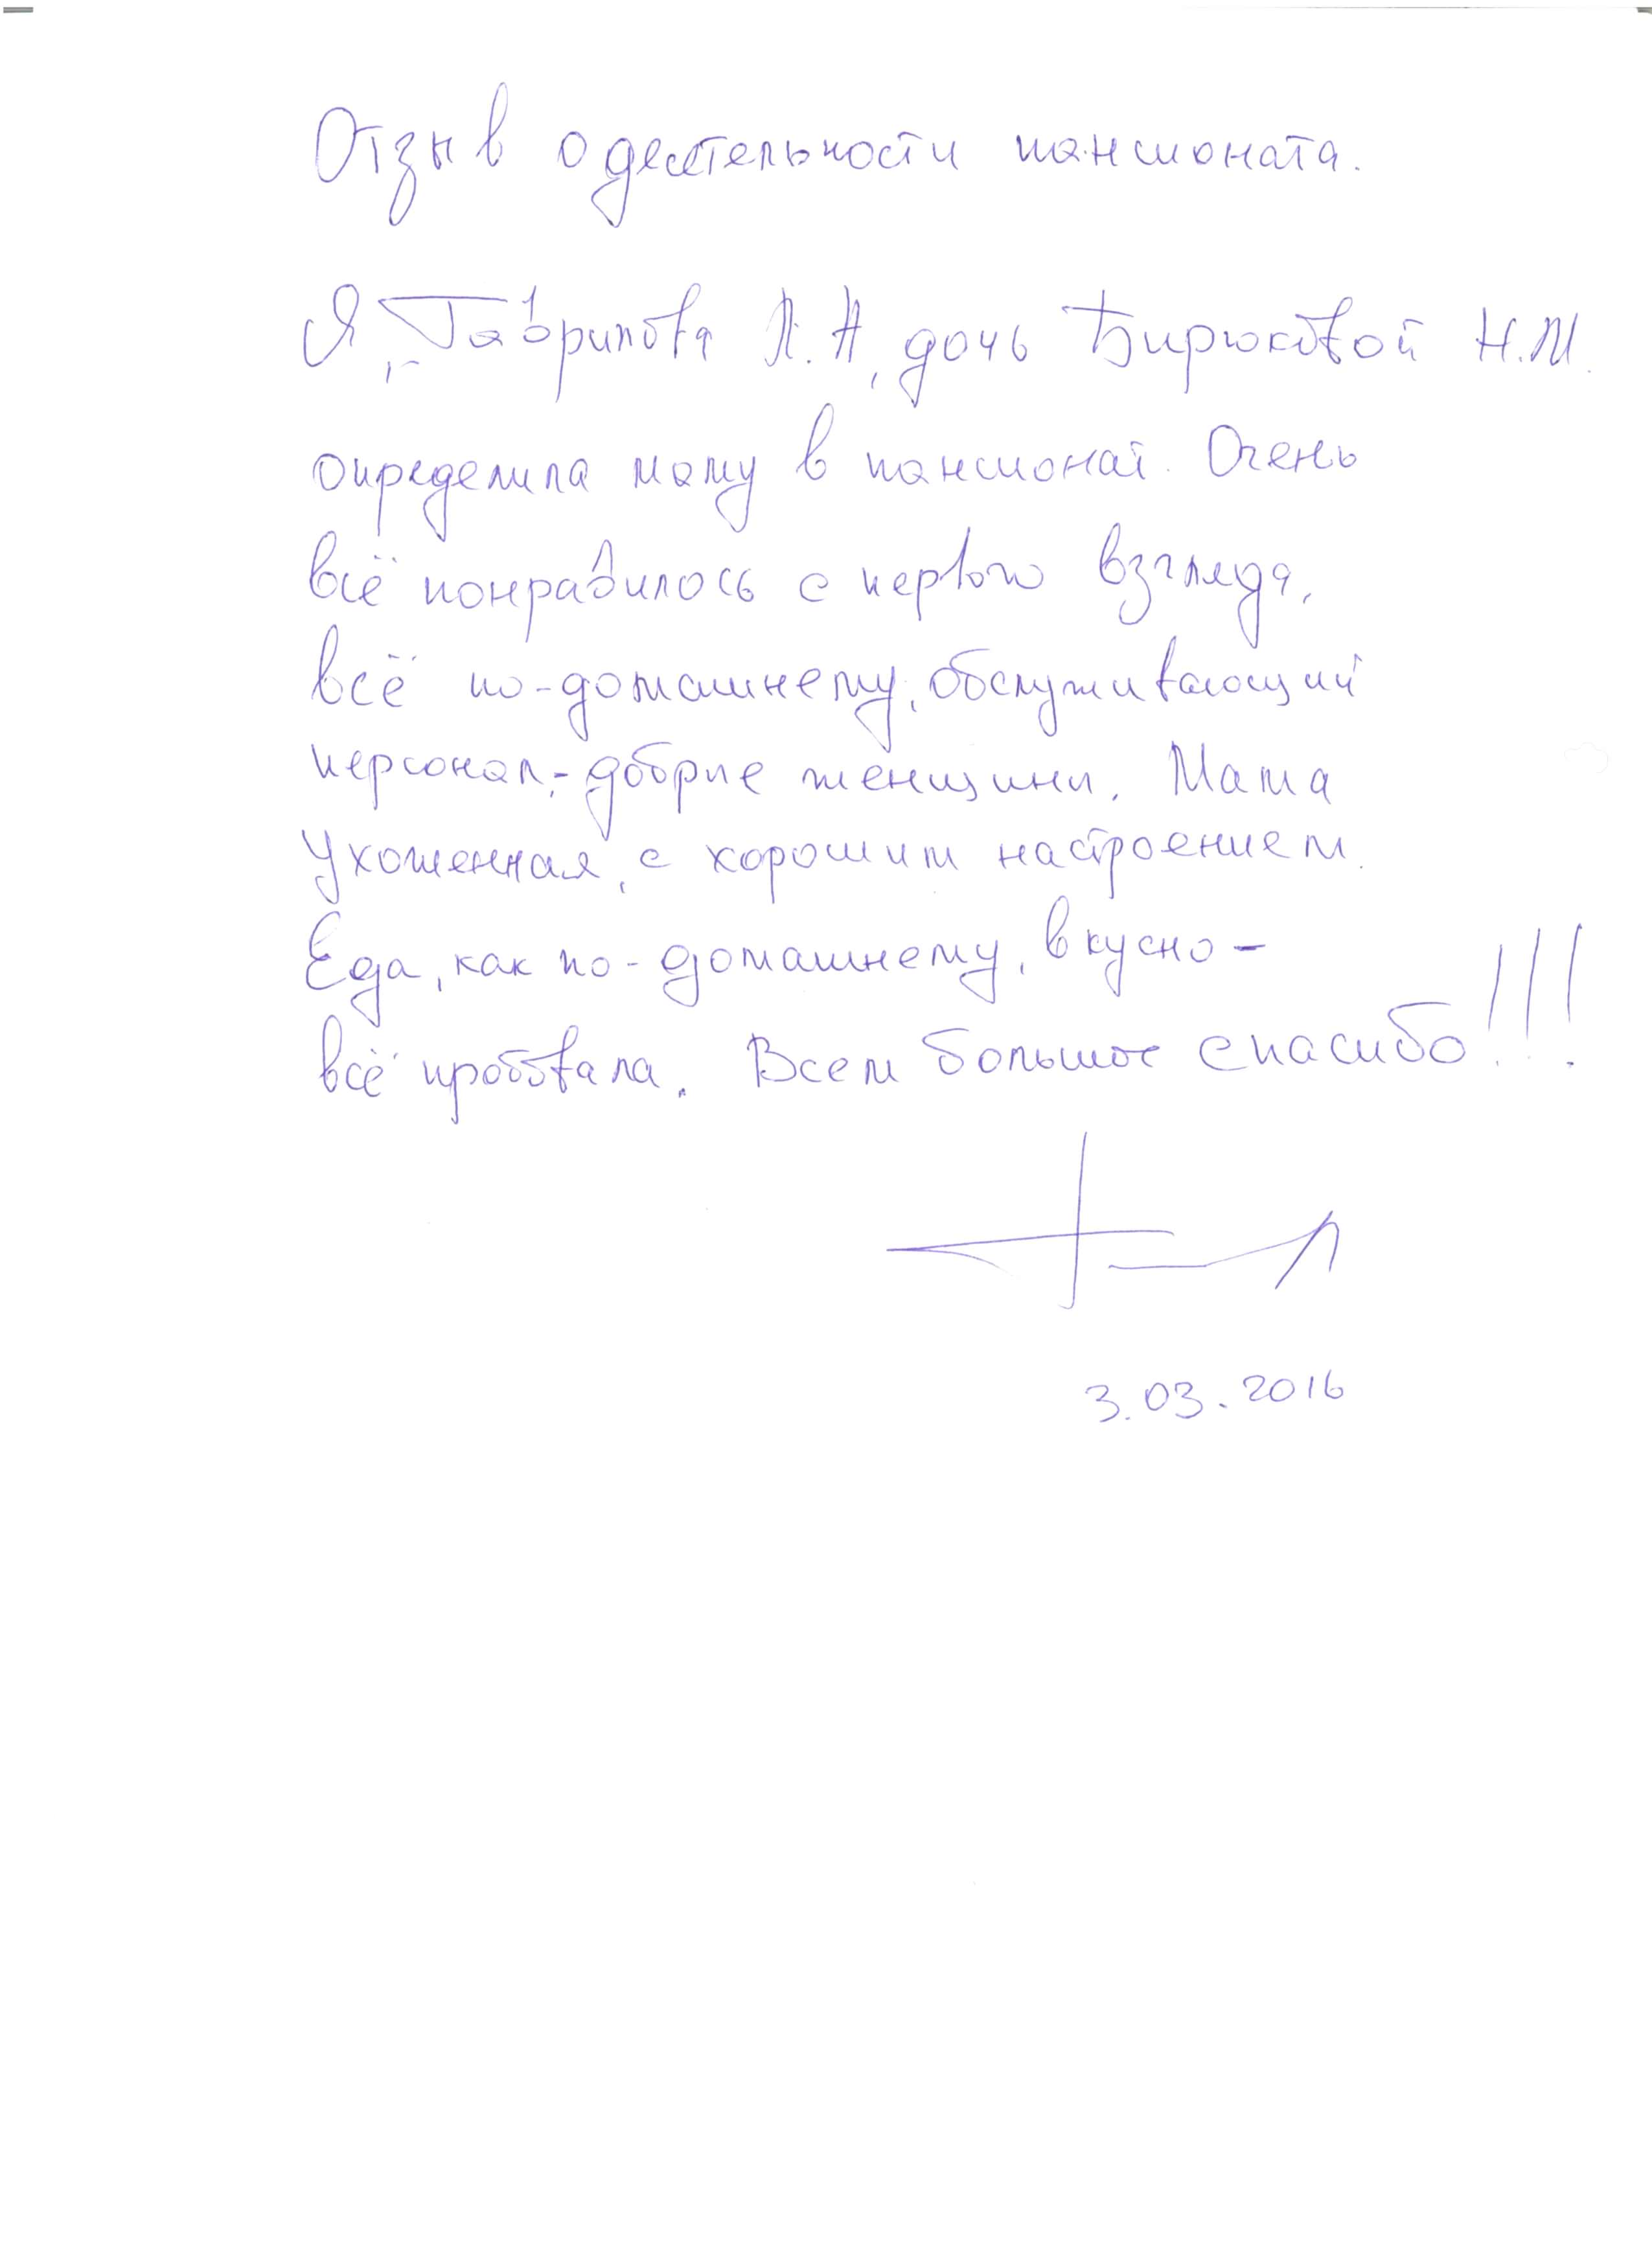 Отзыв о деятельности пансионата.
Я, Гаврилова Л.А, дочь Бирюковой Н.М.
определила маму в пансионат. Очень
всё понравилось с первого взгляда,
всё по-домашнему, обслуживающий
персонал,- добрые женщины. Мама
ухоженная, с хорошим настроением.
Еда, как по-домашнему, вкусно-
всё пробовала. Всем большое спасибо!!!
3.03.2016